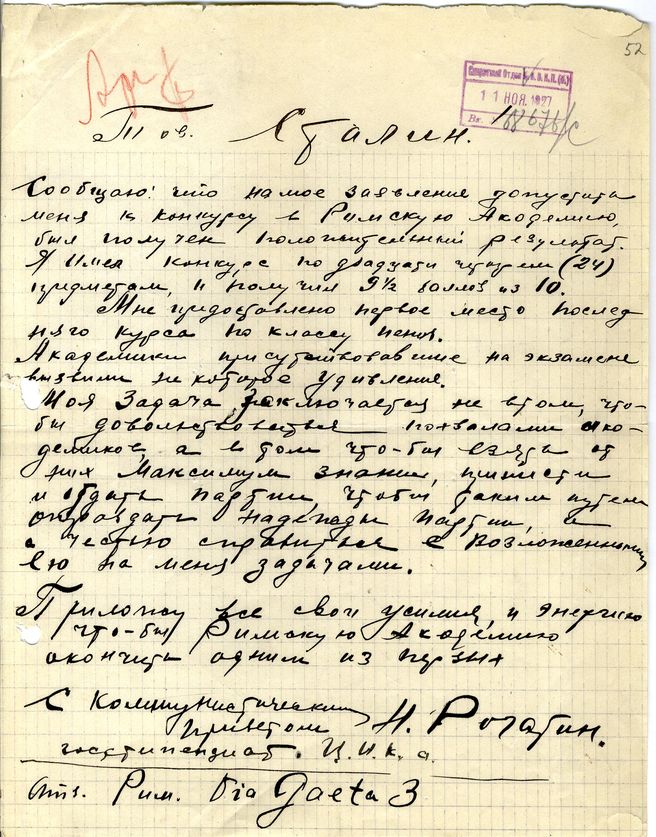 52
Арх
Секретный Отдел Ц.К.В.К.П.(б.)
11 НОЯ. 1927
Вх. 68676/с
Тов. Сталин.
Сообщаю: что на мое заявления допустить
меня к конкурсу в Римскую Академию,
был получен положительный результат.
Я имел конкурс по двадцати чотырем (24)
придметам, и получил 9½ баллов из 10.
Мне придоставлено первое место послед
няго курса по классу пения.
Академики присутствовавшие на экзамене
визвили некоторое удивления.
Моя Задача заключается не втом, что-
бы довольствоваться похвалами ака-
демиков, а в том что-бы взять от
них Максимум знании, принести
и отдать партии, чтобы таким путем
оправдать надежды партии, и
с честью справиться с возложенны
ею на меня задачами.
Приложу все свои усилия, и энергию
что-бы Римскую Академию
окончить одним из первых
С Коммунистическим
приветом Н. Рогатин.
госстипендиат. Ц.И.К.а.
Рим. Via Gaeta 3